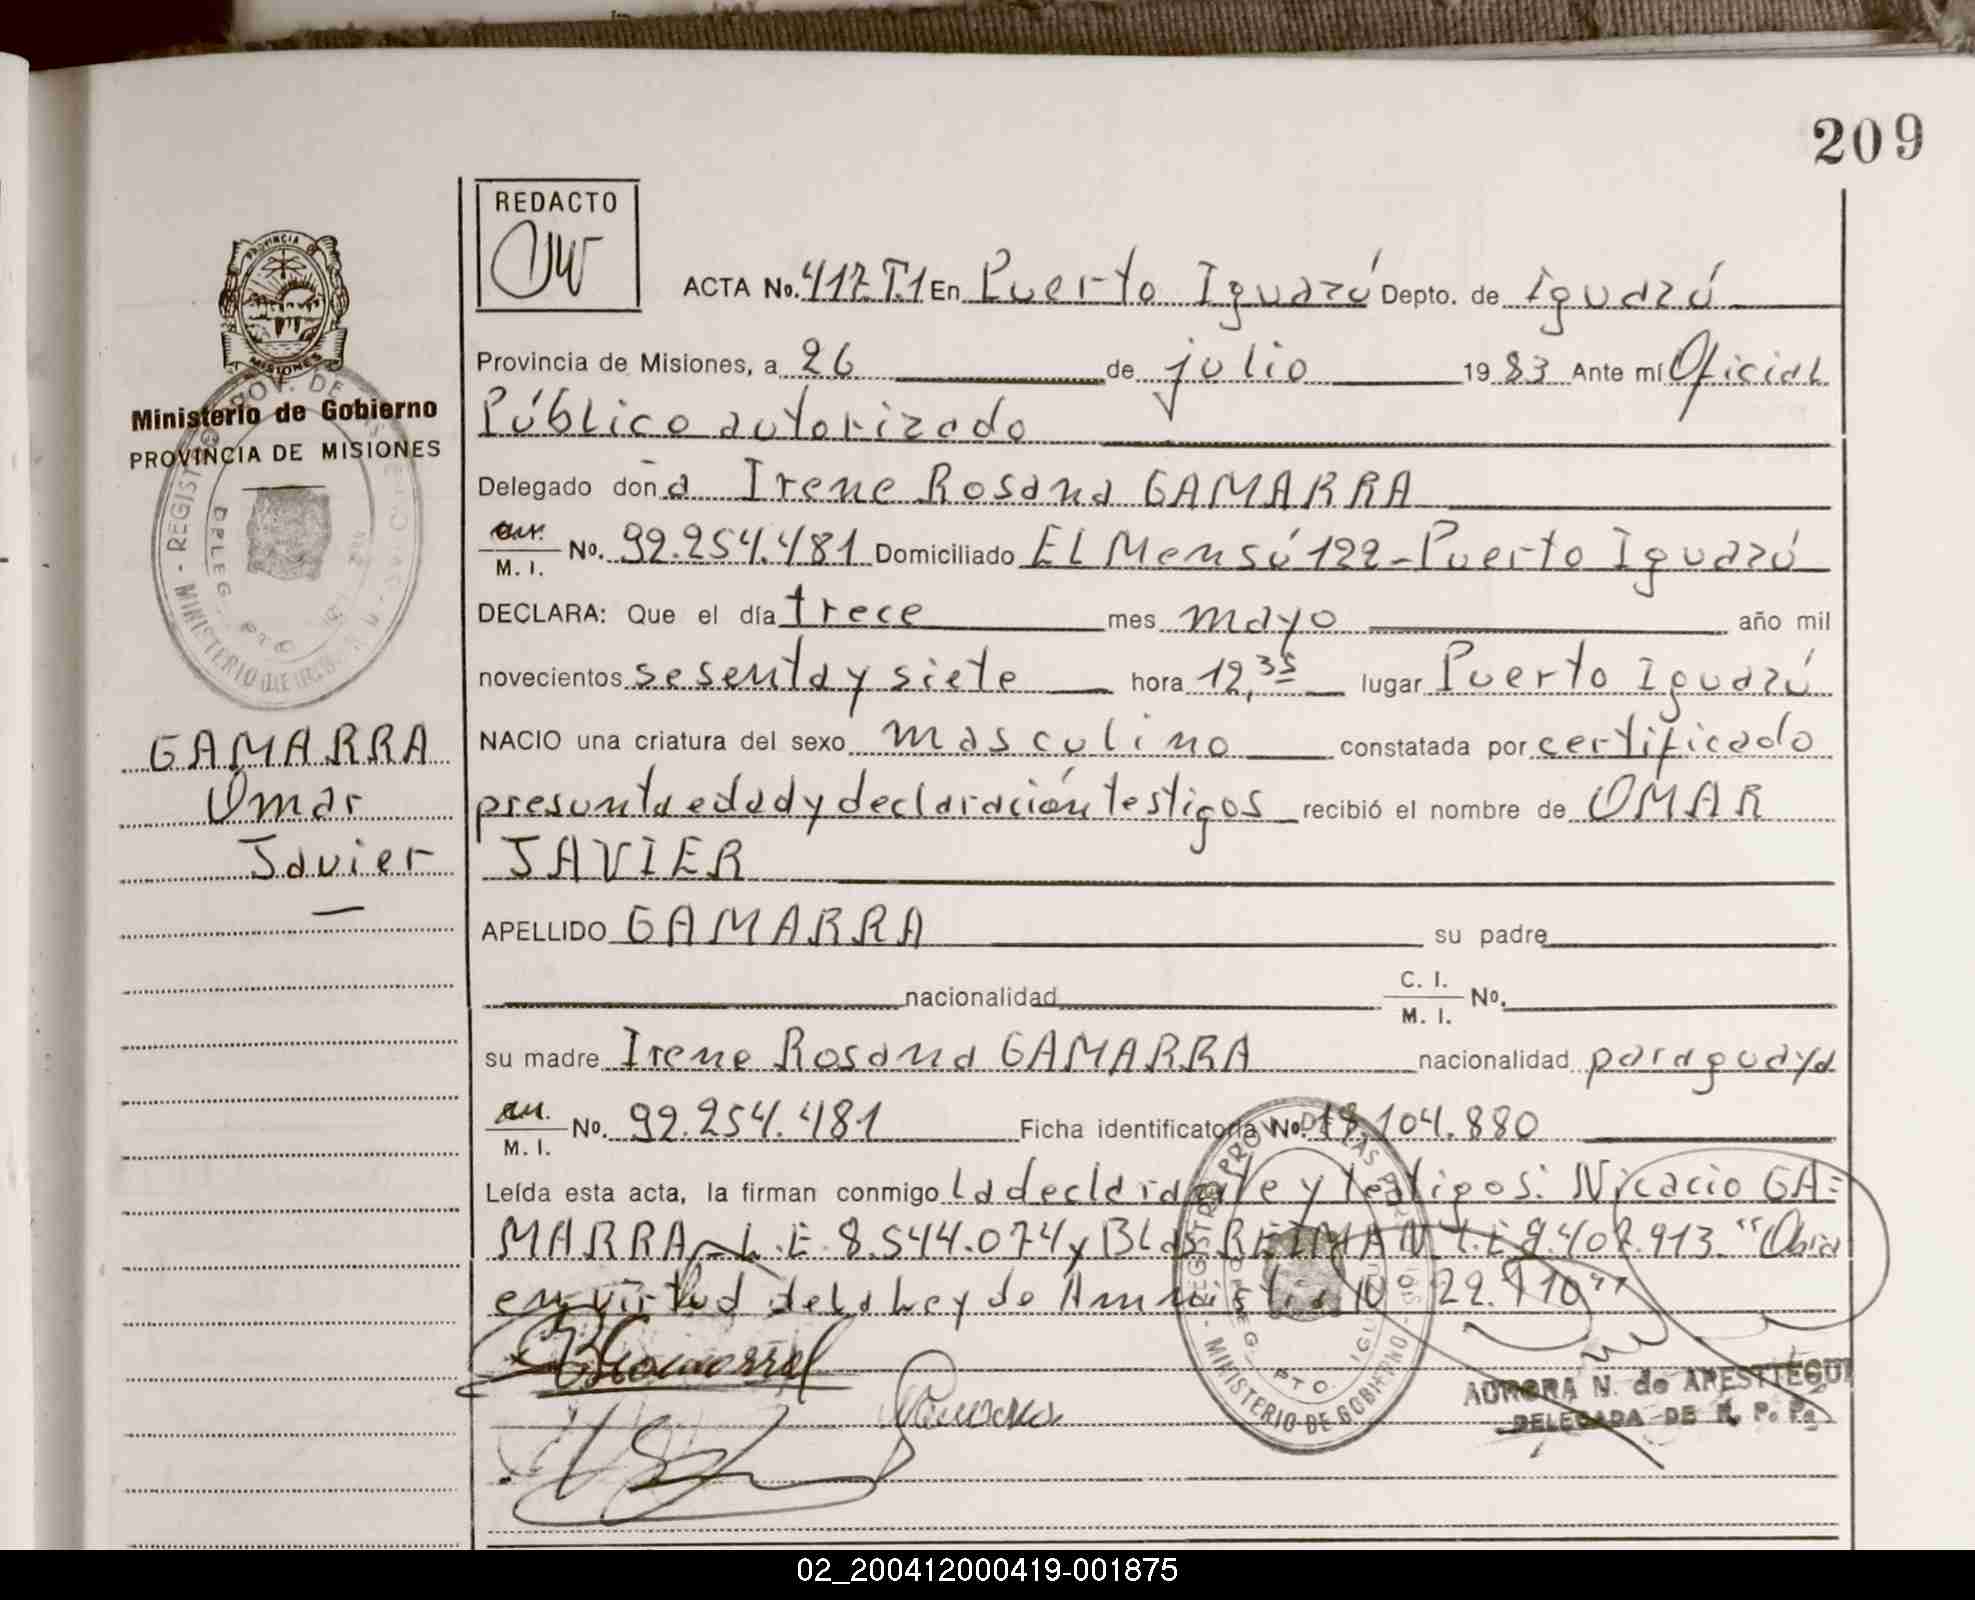 209
REDACTO
PROVINCIA DE
MISIONES
ACTA No. 417. T.1 En Puerto Iguazú Depto. de Iguazú
Provincia de Misiones, a 26 de julio 1983 Ante mí Oficial
Público autorizado
Ministerio de Gobierno
PROVINCIA DE MISIONES
Delegado doña Irene Rosana GAMARRA
M. I. No. 92.254.481 Domiciliado EL Mensú 122 - Puerto Iguazú
DECLARA: Que el día trece mes mayo año mil
novecientos sesenta y siete hora 12,35 lugar Puerto Iguazú
GAMARRA
Omar
Javier
NACIO una criatura del sexo masculino constatada por certificado
presunta edad y declaración testigos recibió el nombre de OMAR
JAVIER
APELLIDO GAMARRA su padre
nacionalidad C. I. M. I. No.
su madre Irene Rosana GAMARRA nacionalidad paraguaya
M. I. No. 92.254.481 Ficha identificatoria No. 18.104.880
Leída esta acta, la firman conmigo la declarante y testigos: Nicacio GA=
MARRA - L.E. 8.544.074 y Blas REIMAN L.E 8.407.913. "Obra
en virtud de la Ley de Amnistia No 22.410"
REGISTRO PROV. DE LAS PERSONAS - MINISTERIO DE GOBIERNO
DELEG. PTO. IGUAZU
AURORA N. de ARESTTEGUI
DELEGADA DE R. P. P.
02_200412000419-001875